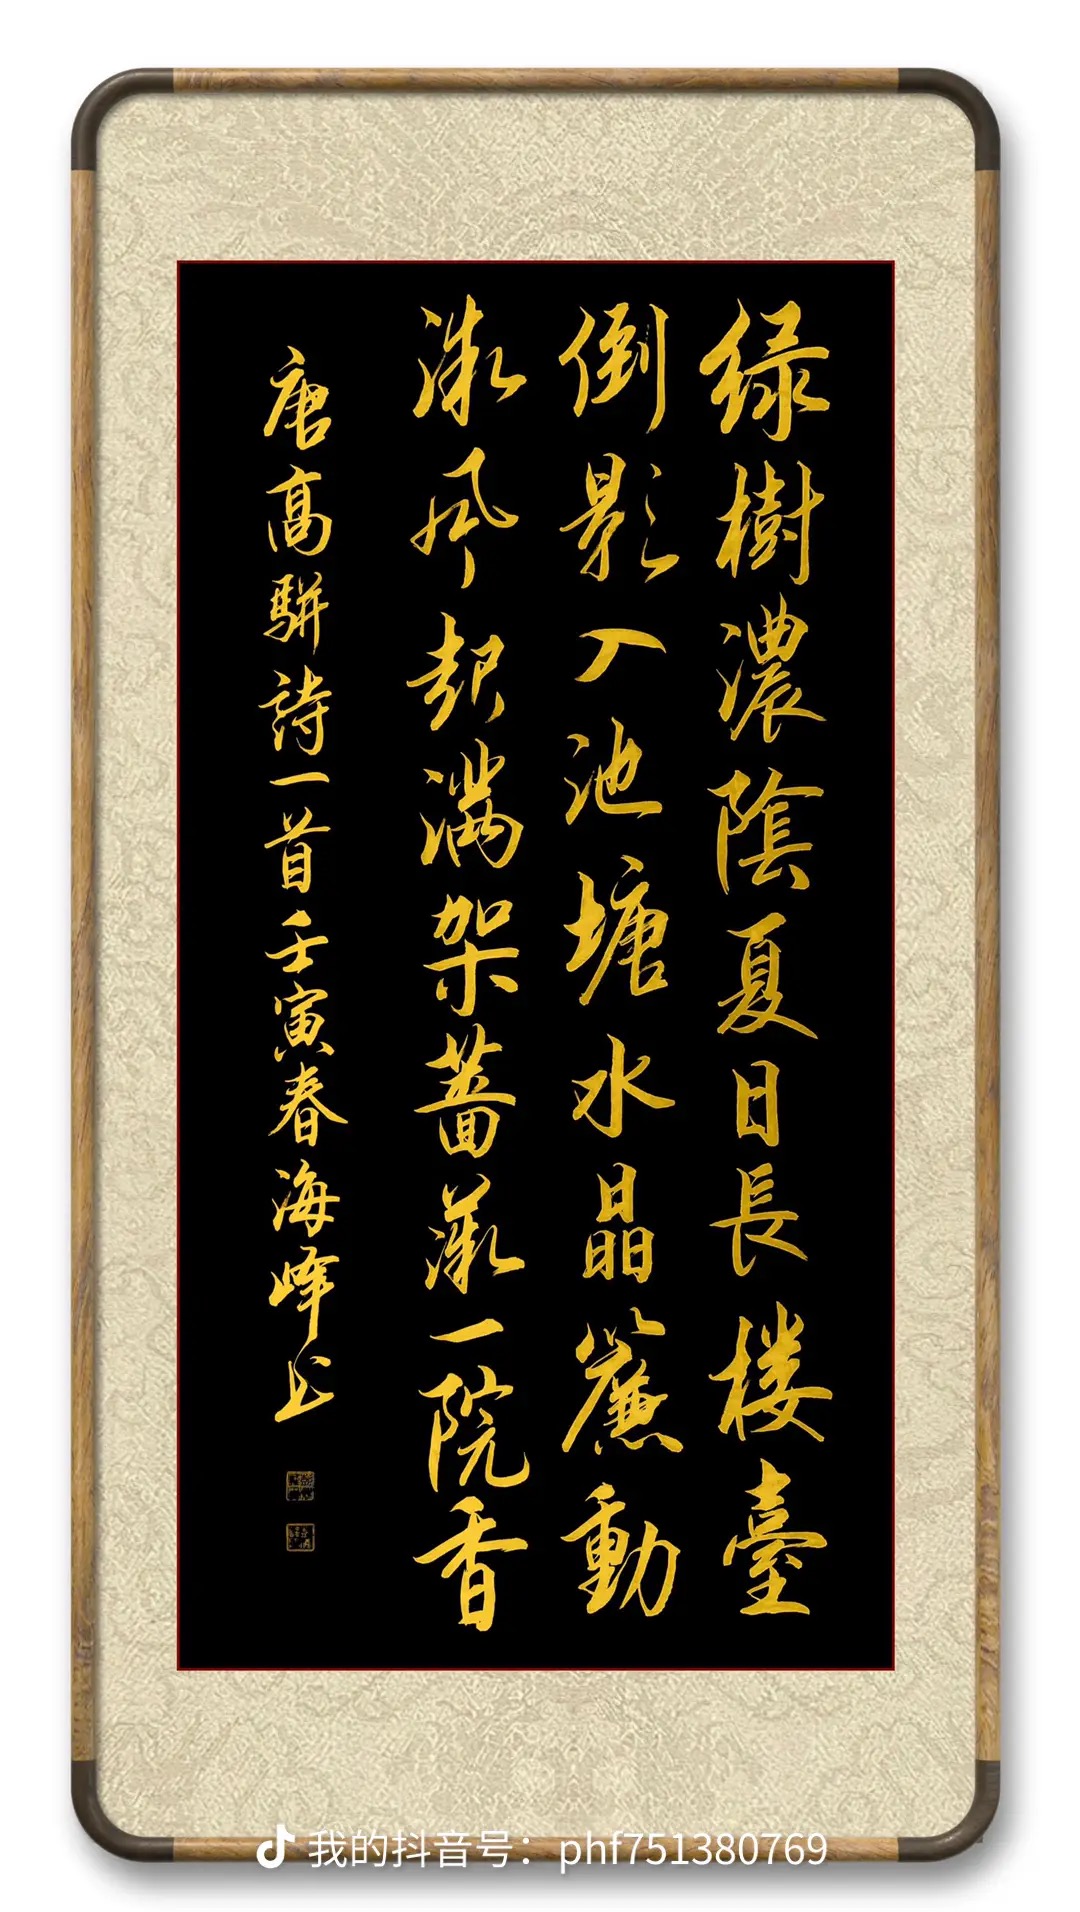 绿樹濃陰夏日長楼臺
倒影入池塘水晶簾動
微风起满架蔷薇一院香
唐高駢詩一首壬寅春海峰书
我的抖音号：phf751380769